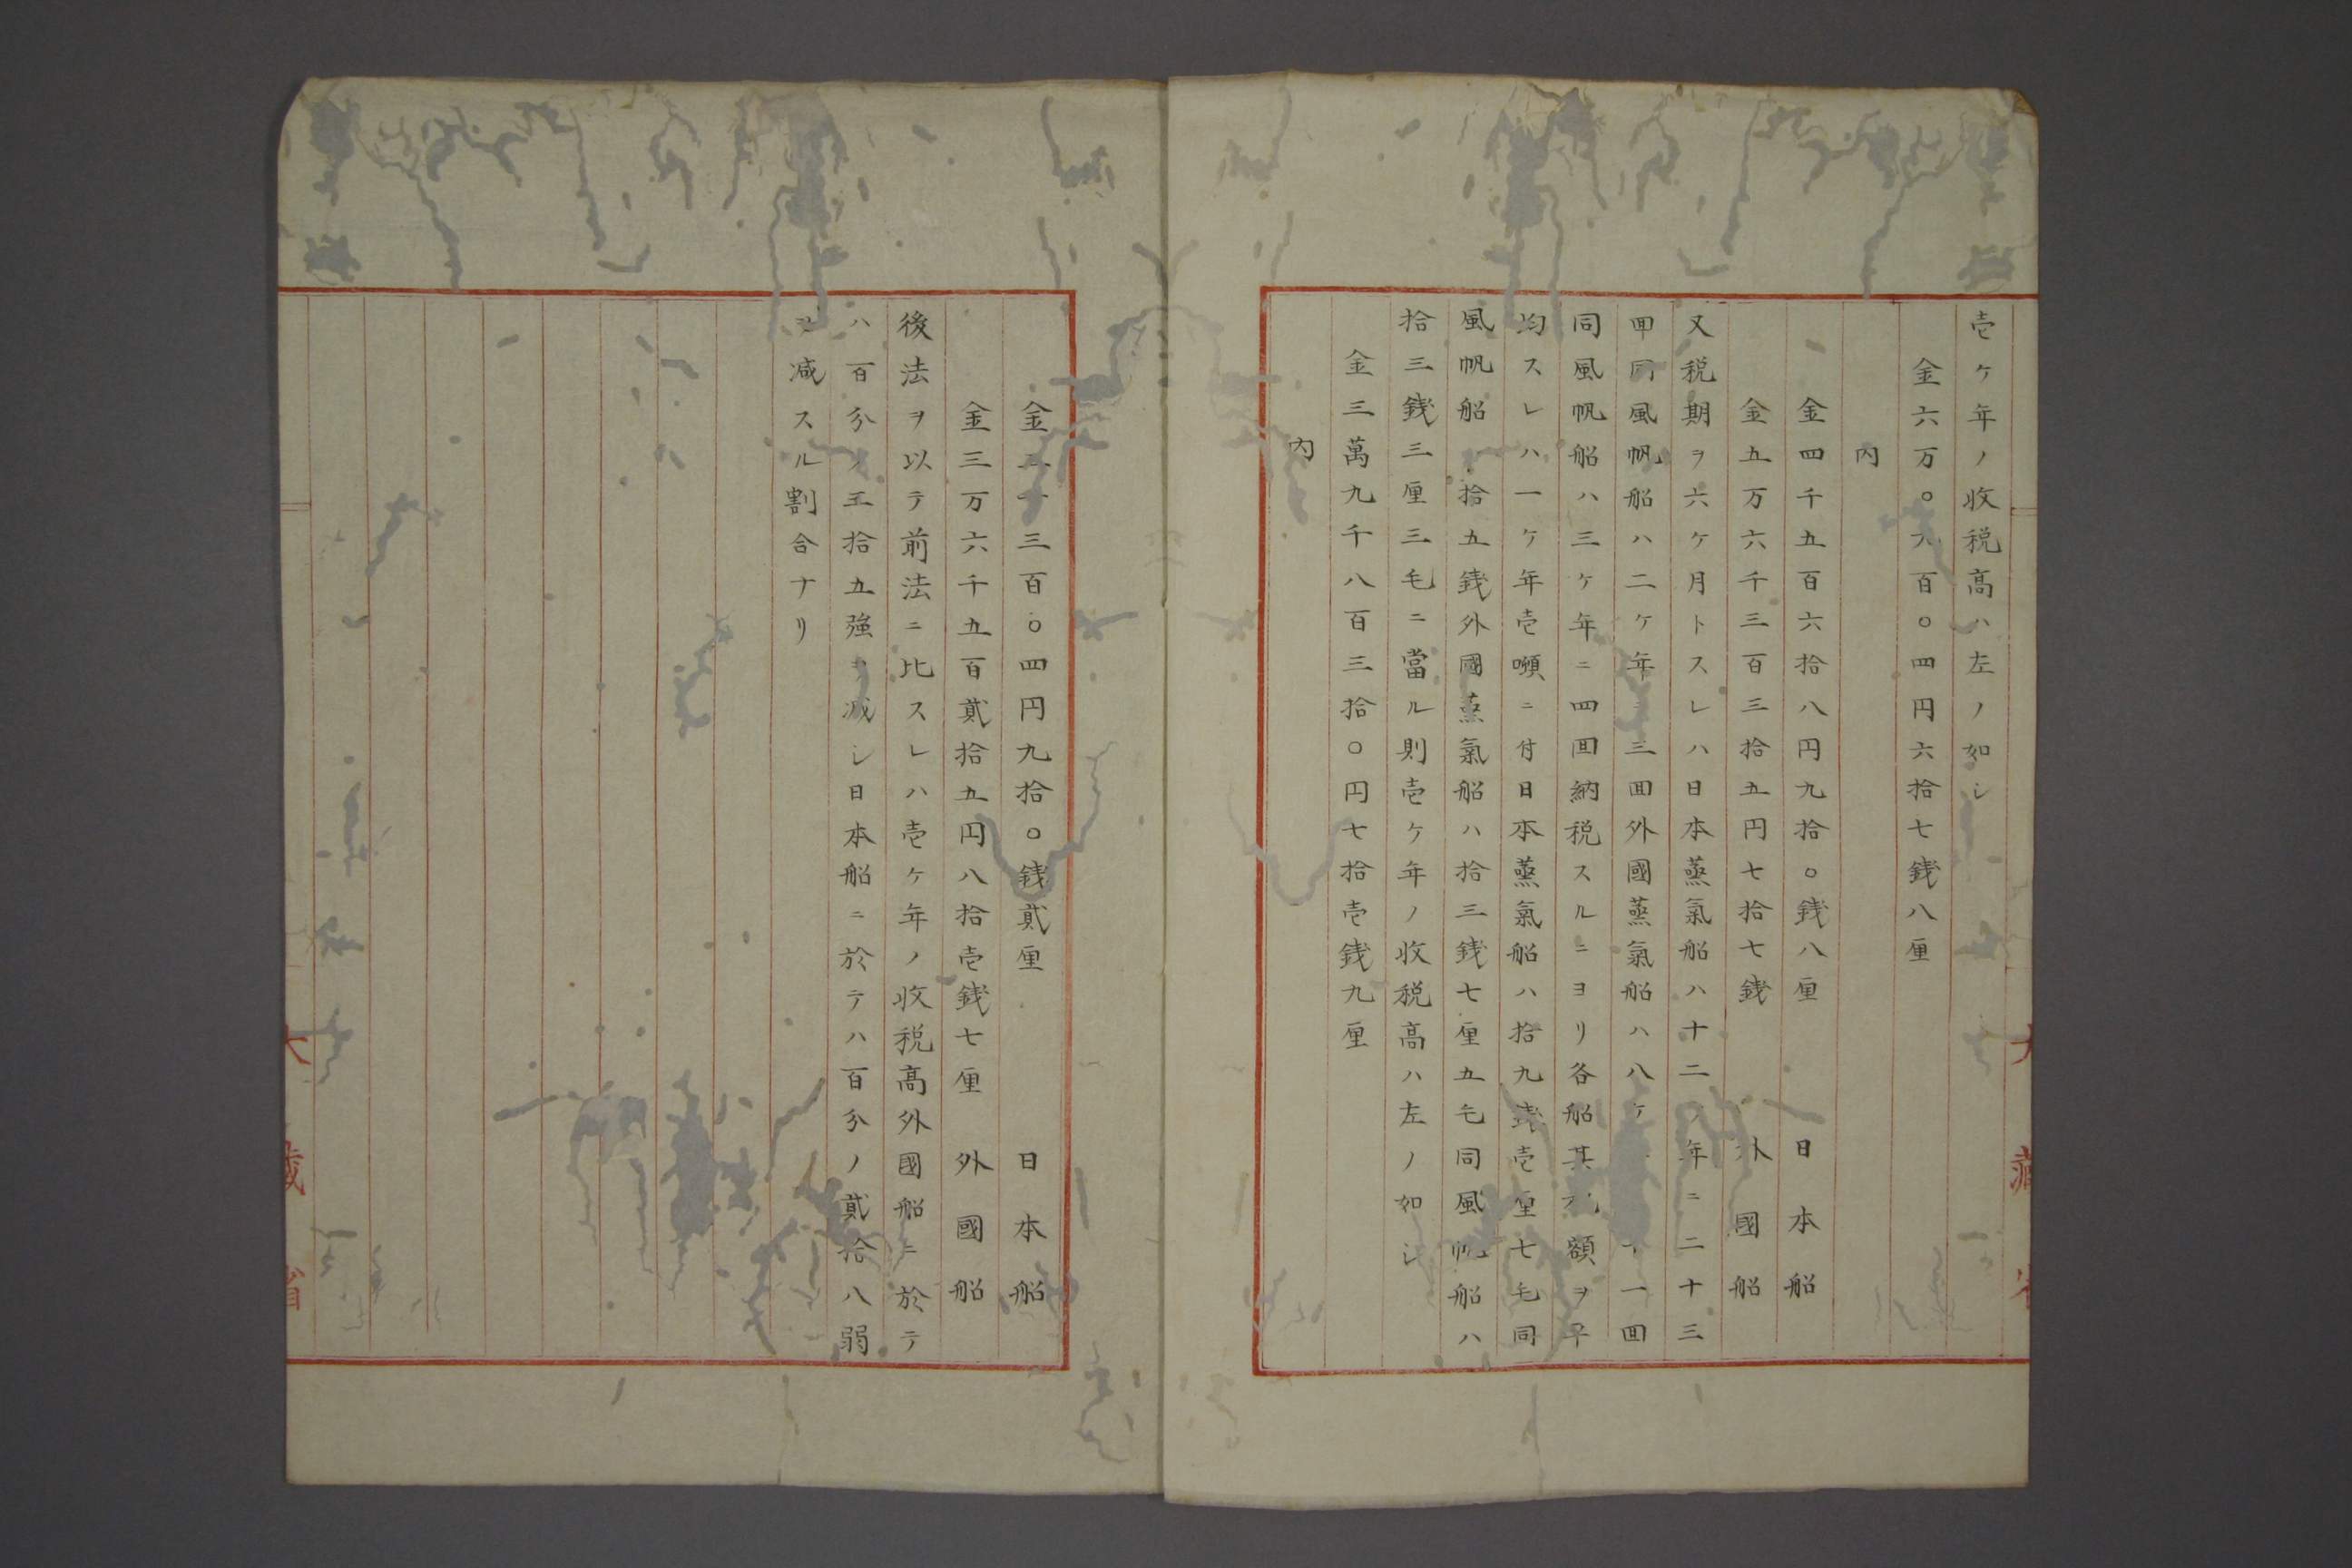 壱ケ年ノ收税高ハ左ノ如シ
金六万〇九百〇四円六拾七銭八厘
内
金四千五百六拾八円九拾〇銭八厘 日本船
金五万六千三百三拾五円七拾七銭 外國船
又税期ヲ六ケ月トスレハ日本蒸氣船ハ十二ケ年ニ二十三
回同風帆船ハ二ケ年ニ三回外國蒸氣船ハ八ケ 一回
同風帆船ハ三ケ年ニ四回納税スルニヨリ各船其税額ヲ平
均スレハ一ケ年壱噸ニ付日本蒸氣船ハ拾九銭壱厘七毛同
風帆船ハ拾五銭外國蒸氣船ハ拾三銭七厘五毛同風帆船ハ
拾三銭三厘三毛ニ當ル則壱ケ年ノ收税高ハ左ノ如シ
金三萬九千八百三拾〇円七拾壱銭九厘
内
金三千三百〇四円九拾〇銭貳厘 日本船
金三万六千五百貳拾五円八拾壱銭七厘 外國船
後法ヲ以テ前法ニ比スレハ壱ケ年ノ收税高外國船ニ於テ
ハ百分ノ三拾五強ヲ减シ日本船ニ於テハ百分ノ貳拾八弱
ヲ减スル割合ナリ
大藏省